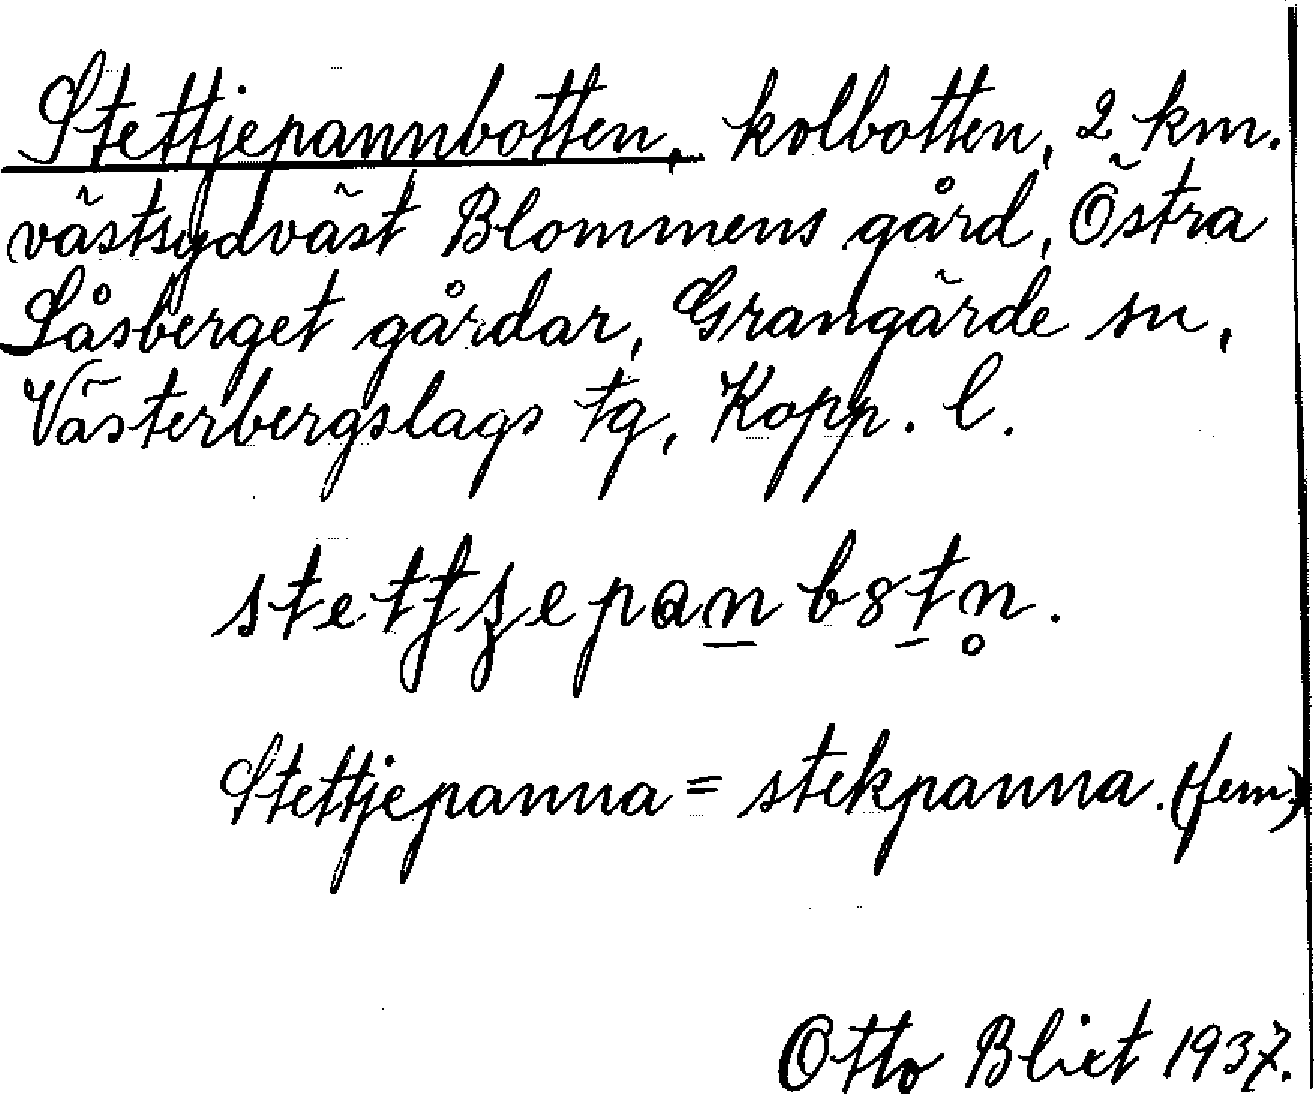 Stettjepannbotten, kolbotten, 2 km.
västsydväst Blommens gård, Östra
Låsberget gårdar, Grangärde sn,
Västerbergslags tg, Kopp. l.
Stettjepanna = stekpanna. (fem.)
Otto Blixt 1937.